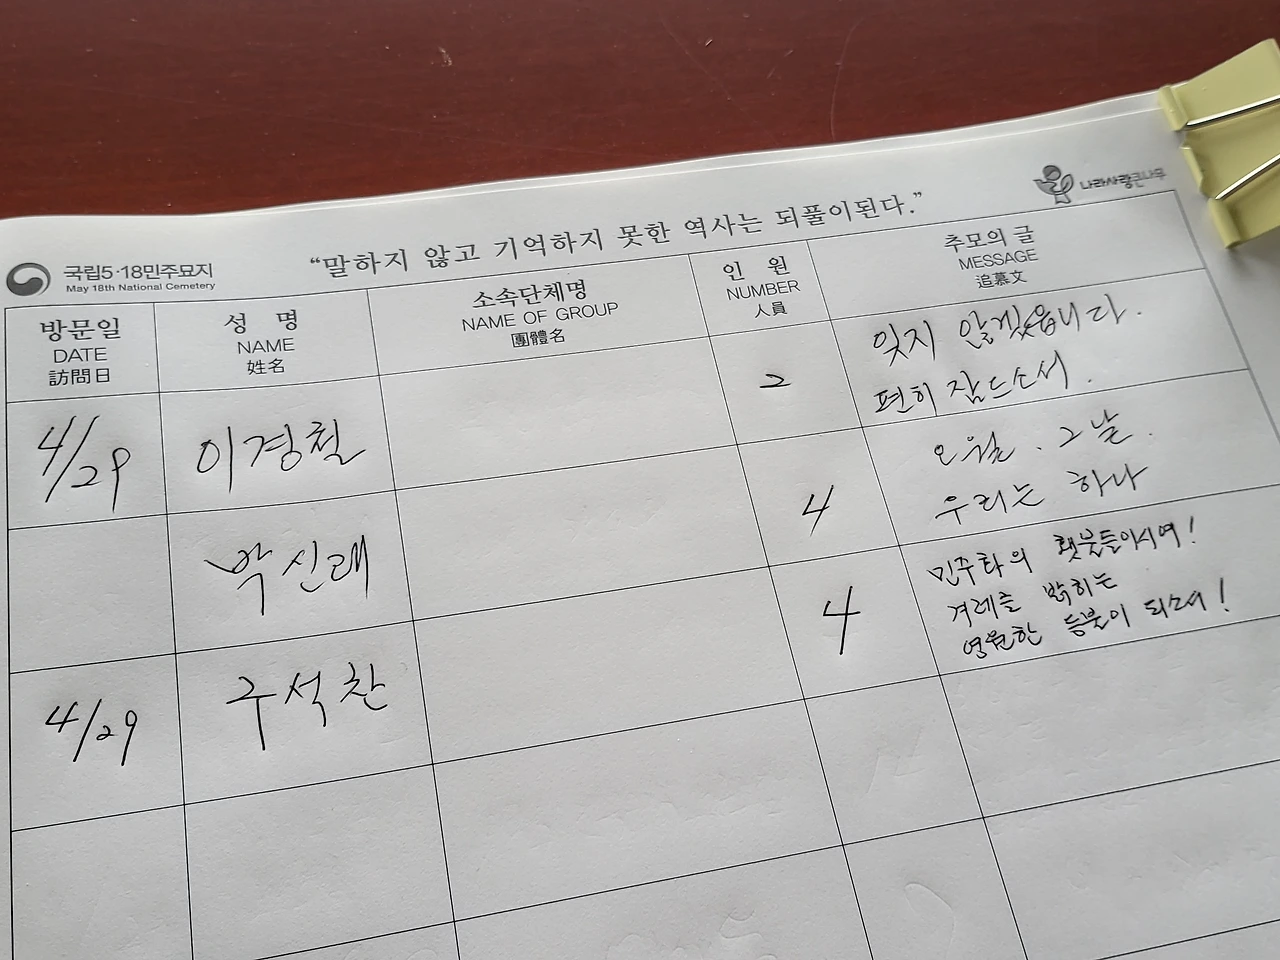 국립5·18민주묘지
May 18th National Cemetery
“말하지 않고 기억하지 못한 역사는 되풀이된다.”
나라사랑큰나무
방문일
DATE
訪問日
성 명
NAME
姓名
소속단체명
NAME OF GROUP
團體名
인 원
NUMBER
人員
추모의 글
MESSAGE
追慕文
4/29
이경철
2
잊지 않겠읍니다.
편히 잠드소서.
박신래
4
오월. 그날.
우리는 하나
4/29
구석찬
4
민주화의 횃불들이시여!
겨레를 밝히는
영원한 등불이 되소서!